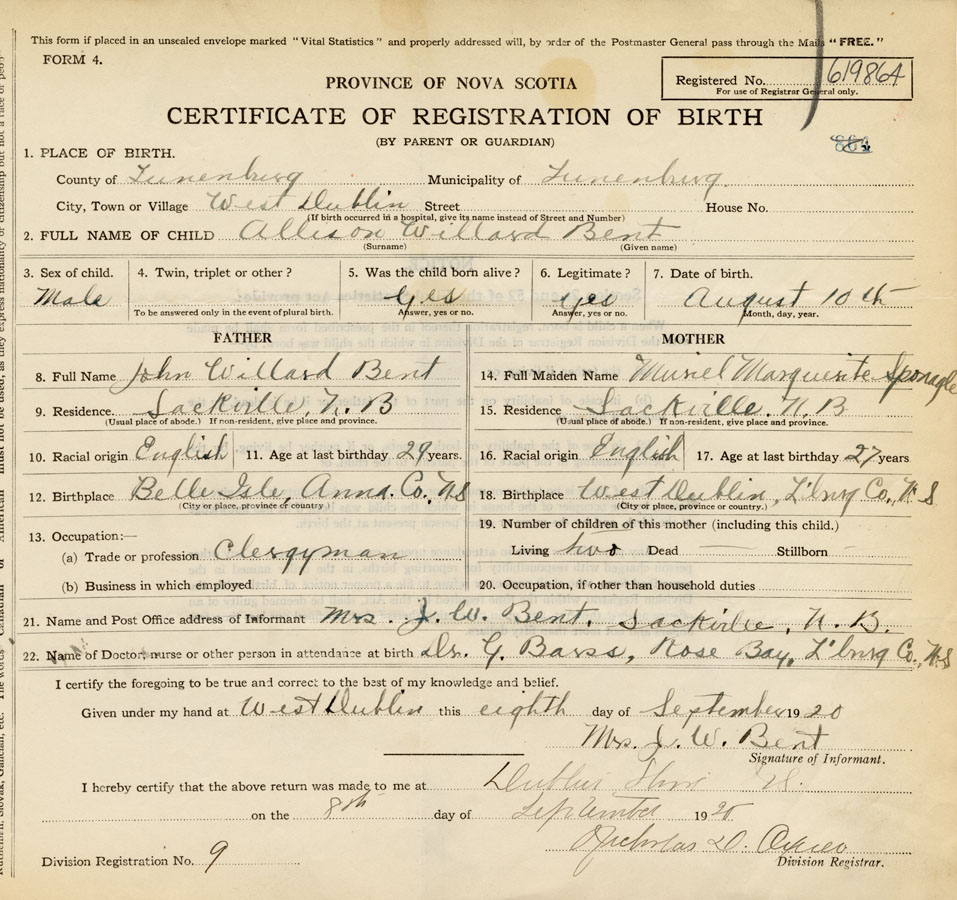 This form if placed in an unsealed envelope marked "Vital Statistics" and properly addressed will, by order of the Postmaster General pass through the Mails "FREE."
FORM 4.
Registered No. 619864
For use of Registrar General only.
PROVINCE OF NOVA SCOTIA
CERTIFICATE OF REGISTRATION OF BIRTH
(BY PARENT OR GUARDIAN)
864
1. PLACE OF BIRTH.
County of Lunenburg Municipality of Lunenburg.
City, Town or Village West Dublin Street House No.
(If birth occurred in a hospital, give its name instead of Street and Number)
2. FULL NAME OF CHILD Allison Willard Bent
(Surname) (Given name)
3. Sex of child. 4. Twin, triplet or other? 5. Was the child born alive? 6. Legitimate? 7. Date of birth.
Male Yes yes August 10th
To be answered only in the event of plural birth. Answer, yes or no. Answer, yes or no. Month, day, year.
FATHER MOTHER
8. Full Name John Willard Bent 14. Full Maiden Name Muriel Marguerite Sponagle
9. Residence. Sackville, N. B 15. Residence Sackville. N. B
(Usual place of abode.) If non-resident, give place and province. (Usual place of abode.) If non-resident, give place and province.
10. Racial origin English 11. Age at last birthday 29 years. 16. Racial origin English 17. Age at last birthday 27 years
12. Birthplace Belle Isle, Anna. Co., N S 18. Birthplace West Dublin, L'burg Co., N. S
(City or place, province or country) (City or place, province or country.)
13. Occupation:— 19. Number of children of this mother (including this child.)
(a) Trade or profession Clergyman Living two Dead — Stillborn
(b) Business in which employed 20. Occupation, if other than household duties
21. Name and Post Office address of Informant Mrs. J. W. Bent. Sackville, N. B.
22. Name of Doctor, nurse or other person in attendance at birth Dr. G. Barss, Rose Bay, L'burg Co., N. S
I certify the foregoing to be true and correct to the best of my knowledge and belief.
Given under my hand at West Dublin this eighth day of September 1920
Mrs. J. W. Bent
Signature of Informant.
I hereby certify that the above return was made to me at Dublin Shore N.S.
on the 8th day of September 1920
Nicholas D.
Division Registration No. 9 Division Registrar.